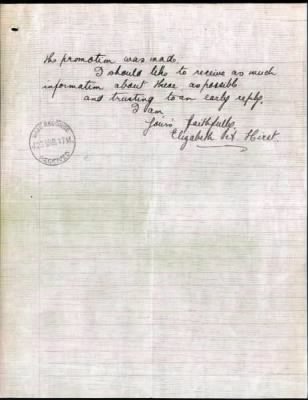 his promotion was made.
I should like to receive as much
information about these as possible
and trusting to an early reply.
I am
Yours faithfully
Elizabeth Hirst.
RECEIVED